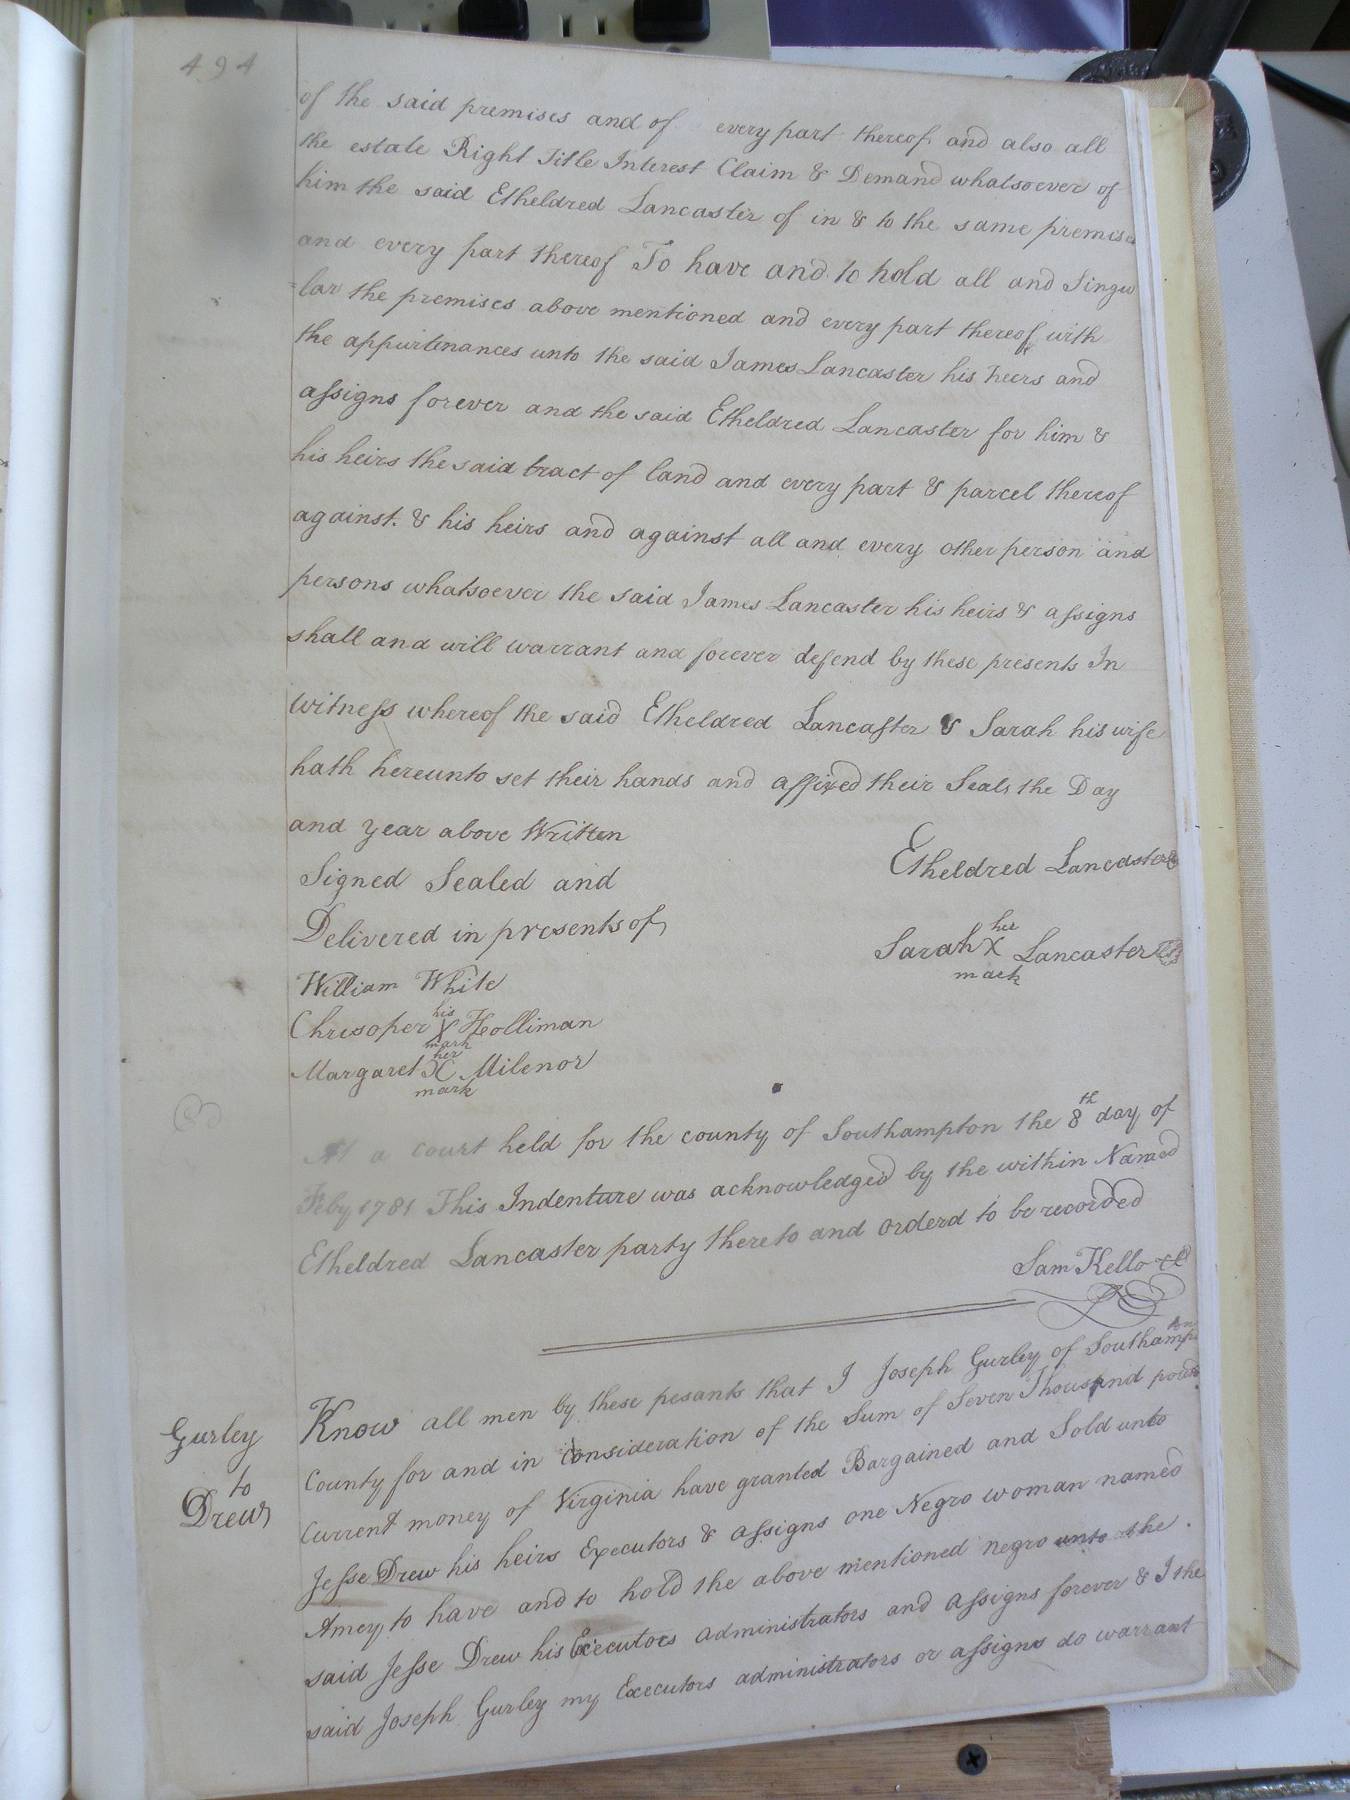 494
of the said premises and of every part thereof and also all
the estate Right Title Interest Claim & Demand whatsoever of
him the said Etheldred Lancaster of in & to the same premises
and every part thereof To have and to hold all and Singu
=lar the premises above mentioned and every part thereof with
the appurtenances unto the said James Lancaster his heirs and
assigns forever and the said Etheldred Lancaster for him &
his heirs the said tract of land and every part & parcel thereof
against. & his heirs and against all and every other person and
persons whatsoever the said James Lancaster his heirs & assigns
shall and will warrant and forever defend by these presents In
witness whereof the said Etheldred Lancaster & Sarah his wife
hath hereunto set their hands and affixed their Seals the Day
and year above Written
Signed Sealed and
Etheldred Lancaster
Delivered in presents of
Sarah her X mark Lancaster
William White
Chrisoper his X mark Holliman
Margaret her X mark Milenor
At a court held for the county of Southampton the 8th day of
Feby 1781 This Indenture was acknowledged by the within Named
Etheldred Lancaster party thereto and orderd to be recorded
Sam Kello
Gurley
to
Drew
Know all men by these pesants that I Joseph Gurley of Southampton
County for and in Consideration of the Sum of Seven Thousand pounds
Current money of Virginia have granted Bargained and Sold unto
Jesse Drew his heirs Executors & assigns one Negro woman named
Amey to have and to hold the above mentioned negro unto the
said Jesse Drew his Executors administrators and assigns forever & I the
said Joseph Gurley my Executors administrators or assigns do warrant